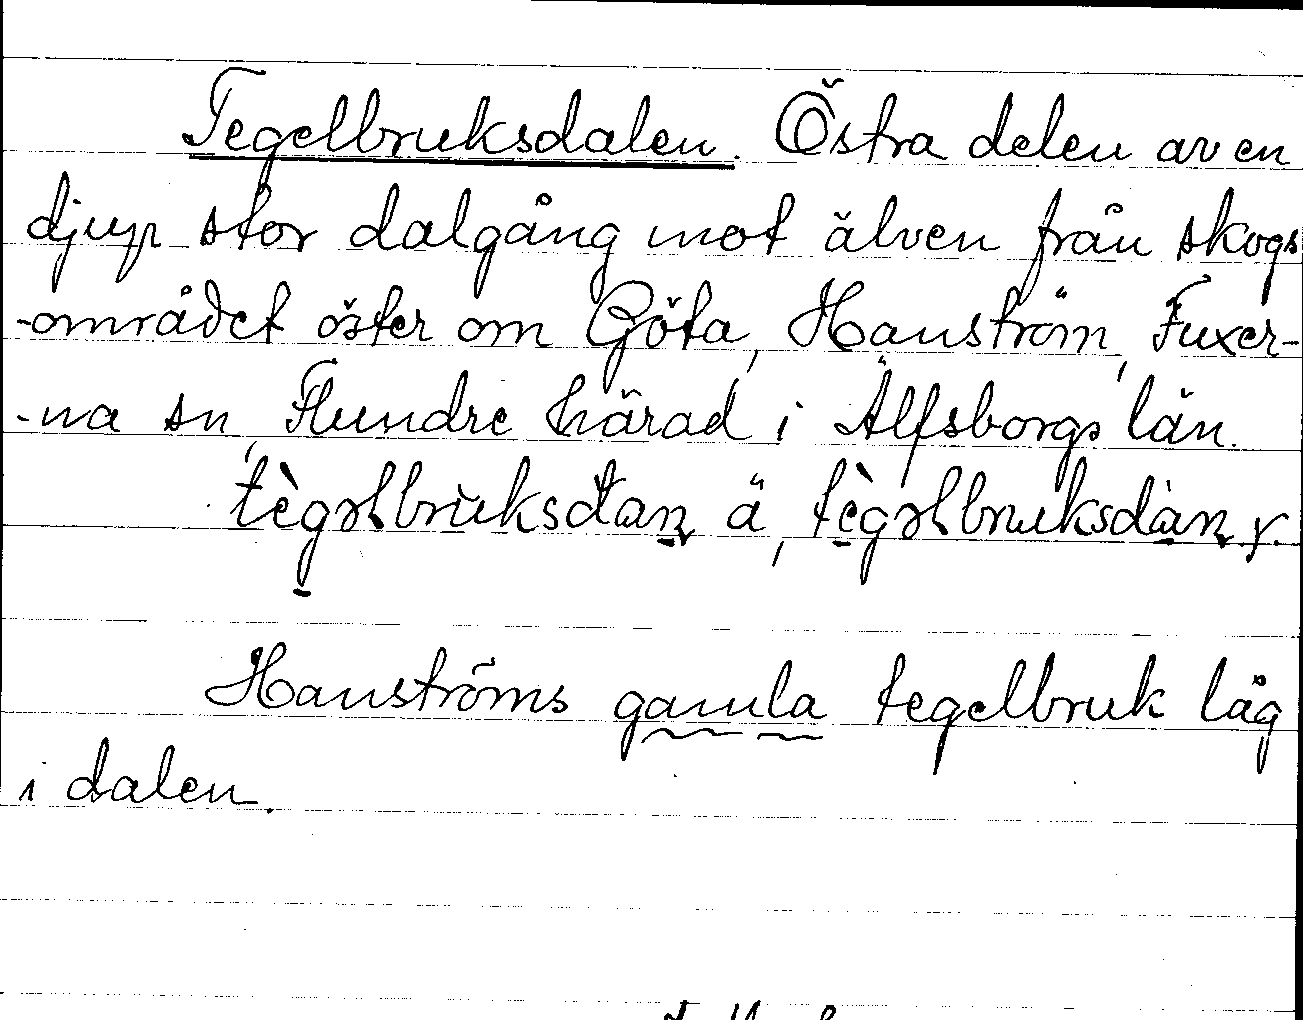 Tegelbruksdalen. Östra delen av en
djup stor dalgång mot älven från skogs
-området öster om Göta, Hanström, Fuxer-
-na sn, Flundre härad i Älfsborgs län.
tègəlbrùksdan ä, tègəlbruksdàn y.
Hanströms gamla tegelbruk låg
i dalen.